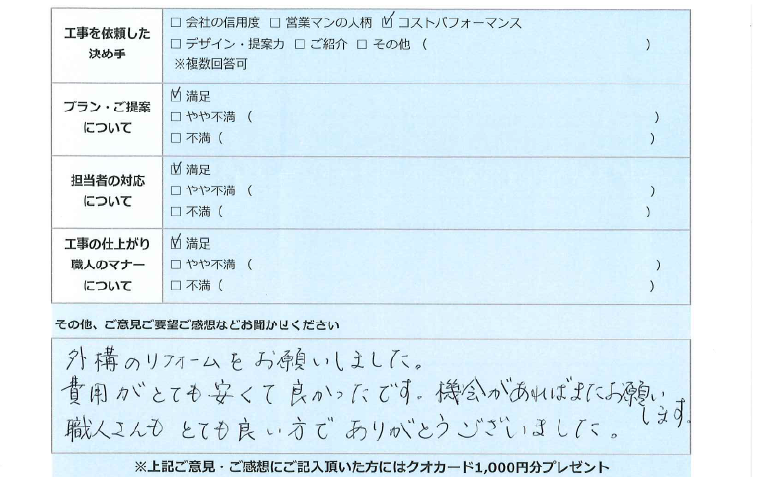 工事を依頼した
決め手
□ 会社の信用度 □ 営業マンの人柄 ☑ コストパフォーマンス
□ デザイン・提案力 □ ご紹介 □ その他 ( )
※複数回答可
プラン・ご提案
について
☑ 満足
□ やや不満 ( )
□ 不満 ( )
担当者の対応
について
☑ 満足
□ やや不満 ( )
□ 不満 ( )
工事の仕上がり
職人のマナー
について
☑ 満足
□ やや不満 ( )
□ 不満 ( )
その他、ご意見ご要望ご感想などお聞かせください
外構のリフォームをお願いしました。
費用がとても安くて良かったです。機会があればまたお願い
します。
職人さんもとても良い方でありがとうございました。
※上記ご意見・ご感想にご記入頂いた方にはクオカード1,000円分プレゼント